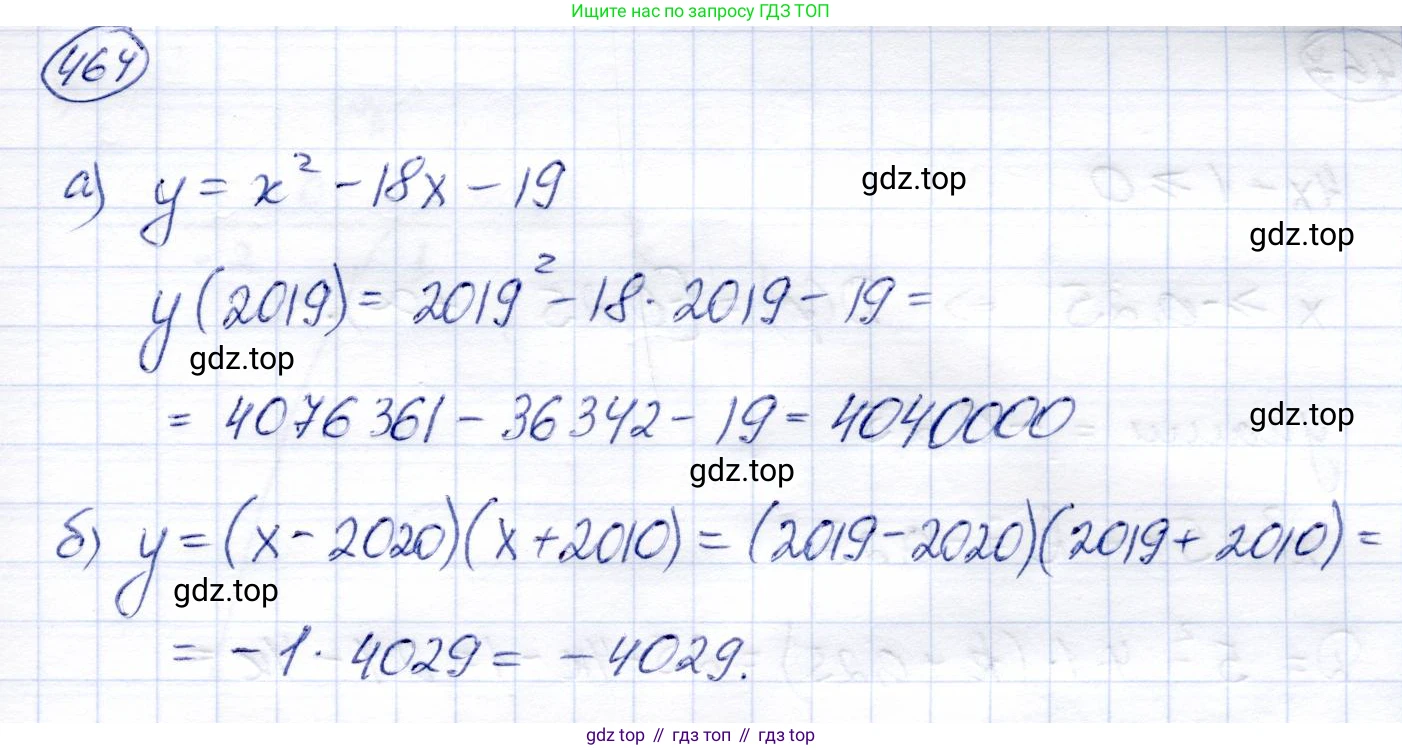 Ищите нас по запросу ГДЗ ТОП
464
а) y = x² - 18x - 19
gdz.top
gdz.top
y(2019) = 2019² - 18 · 2019 - 19 =
gdz.top
= 4076361 - 36342 - 19 = 4040000
gdz.top
gdz.top
б) y = (x - 2020)(x + 2010) = (2019 - 2020)(2019 + 2010) =
gdz.top
= -1 · 4029 = -4029.
gdz top // гдз топ // гдз top